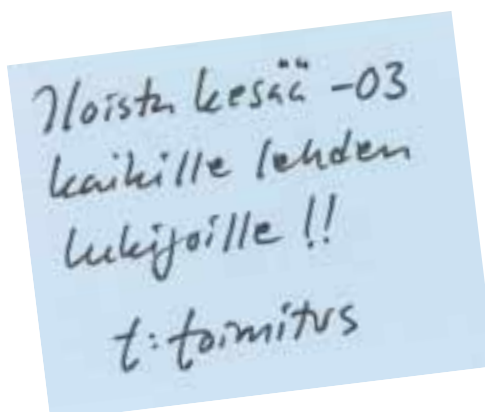 Iloista kesää -03
kaikille lehden
lukijoille !!
t: toimitus